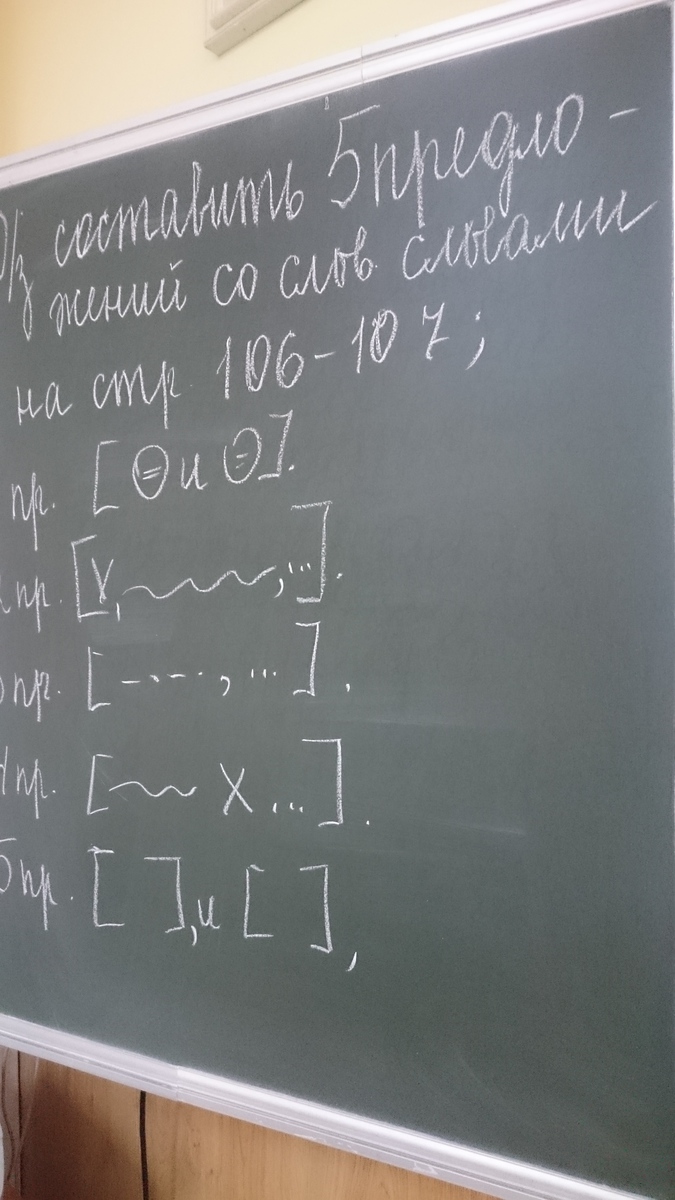 Д/з составить 5 предло-
жений со слов. словами
на стр. 106-107;
пр. [ и ].
пр. [х, , ...].
пр. [-·-·-·, ...].
4пр. [ х ...].
5пр. [ ], и [ ],